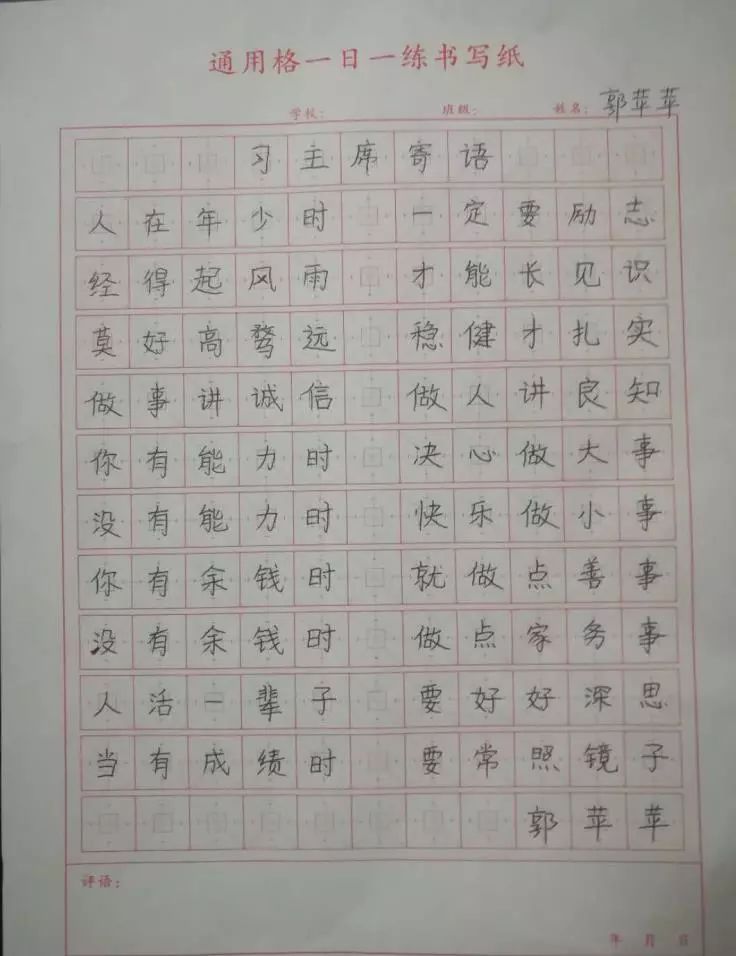 通用格一日一练书写纸
学校： 班级： 姓名：郭苹苹
习主席寄语
人在年少时 一定要励志
经得起风雨 才能长见识
莫好高骛远 稳健才扎实
做事讲诚信 做人讲良知
你有能力时 决心做大事
没有能力时 快乐做小事
你有余钱时 就做点善事
没有余钱时 做点家务事
人活一辈子 要好好深思
当有成绩时 要常照镜子
郭苹苹
评语：
年 月 日